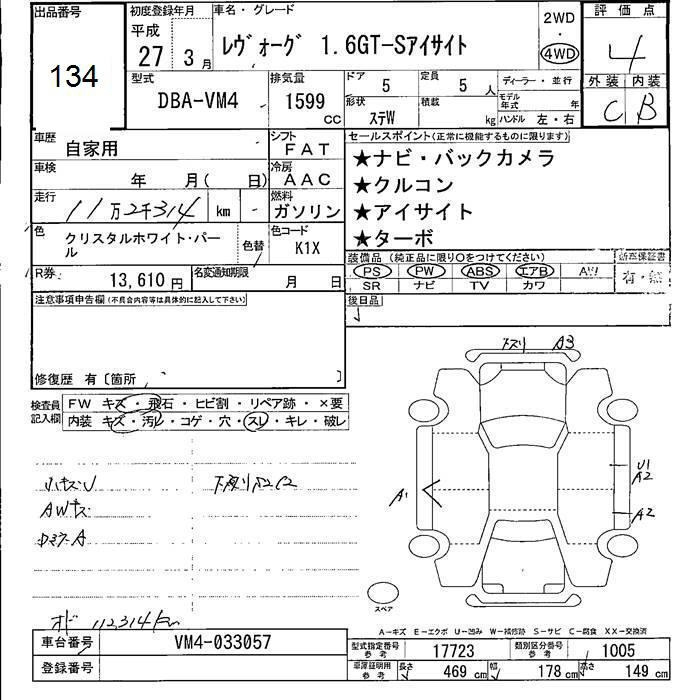 出品番号
134
初度登録年月
平成
27 3月
車名・グレード
レヴォーグ 1.6GT-Sアイサイト
2WD
・
4WD
評価点
4
型式
DBA-VM4
排気量
1599
CC
ドア
5
定員
5人
形状
ステW
積載
kg
ディーラー・並行
モデル年式 年
ハンドル 左・右
外装 内装
C B
車歴
自家用
シフト
FAT
車検
年 月( 日)
冷房
AAC
走行
11万2千314 km
燃料
ガソリン
色
クリスタルホワイト・パール
色替
色コード
K1X
R券
13,610円
名変通知期限
月 日
セールスポイント(正常に機能するものに限ります)
★ナビ・バックカメラ
★クルコン
★アイサイト
★ターボ
装備品 (純正品に限り○をつけてください)
PS PW ABS エアB AW
SR ナビ TV カワ
新車保証書
有・無
後日品
注意事項申告欄(不具合内容等は具体的に記入して下さい)
修復歴 有〔箇所 〕
検査員記入欄
FW キズ・飛石・ヒビ割・リペア跡・×要
内装 キズ・汚レ・コゲ・穴・スレ・キレ・破レ
下スリ A3
U1
A2
A2
A1
小キズU
AWキズ
スペア
オド 112314km
A-キズ E-エクボ U-凹み W-補修跡 S-サビ C-腐食 XX-交換済
車台番号
VM4-033057
登録番号
型式指定番号 参考
17723
類別区分番号 参考
1005
車庫証明用 参考
長さ 469 cm
幅 178 cm
高さ 149 cm